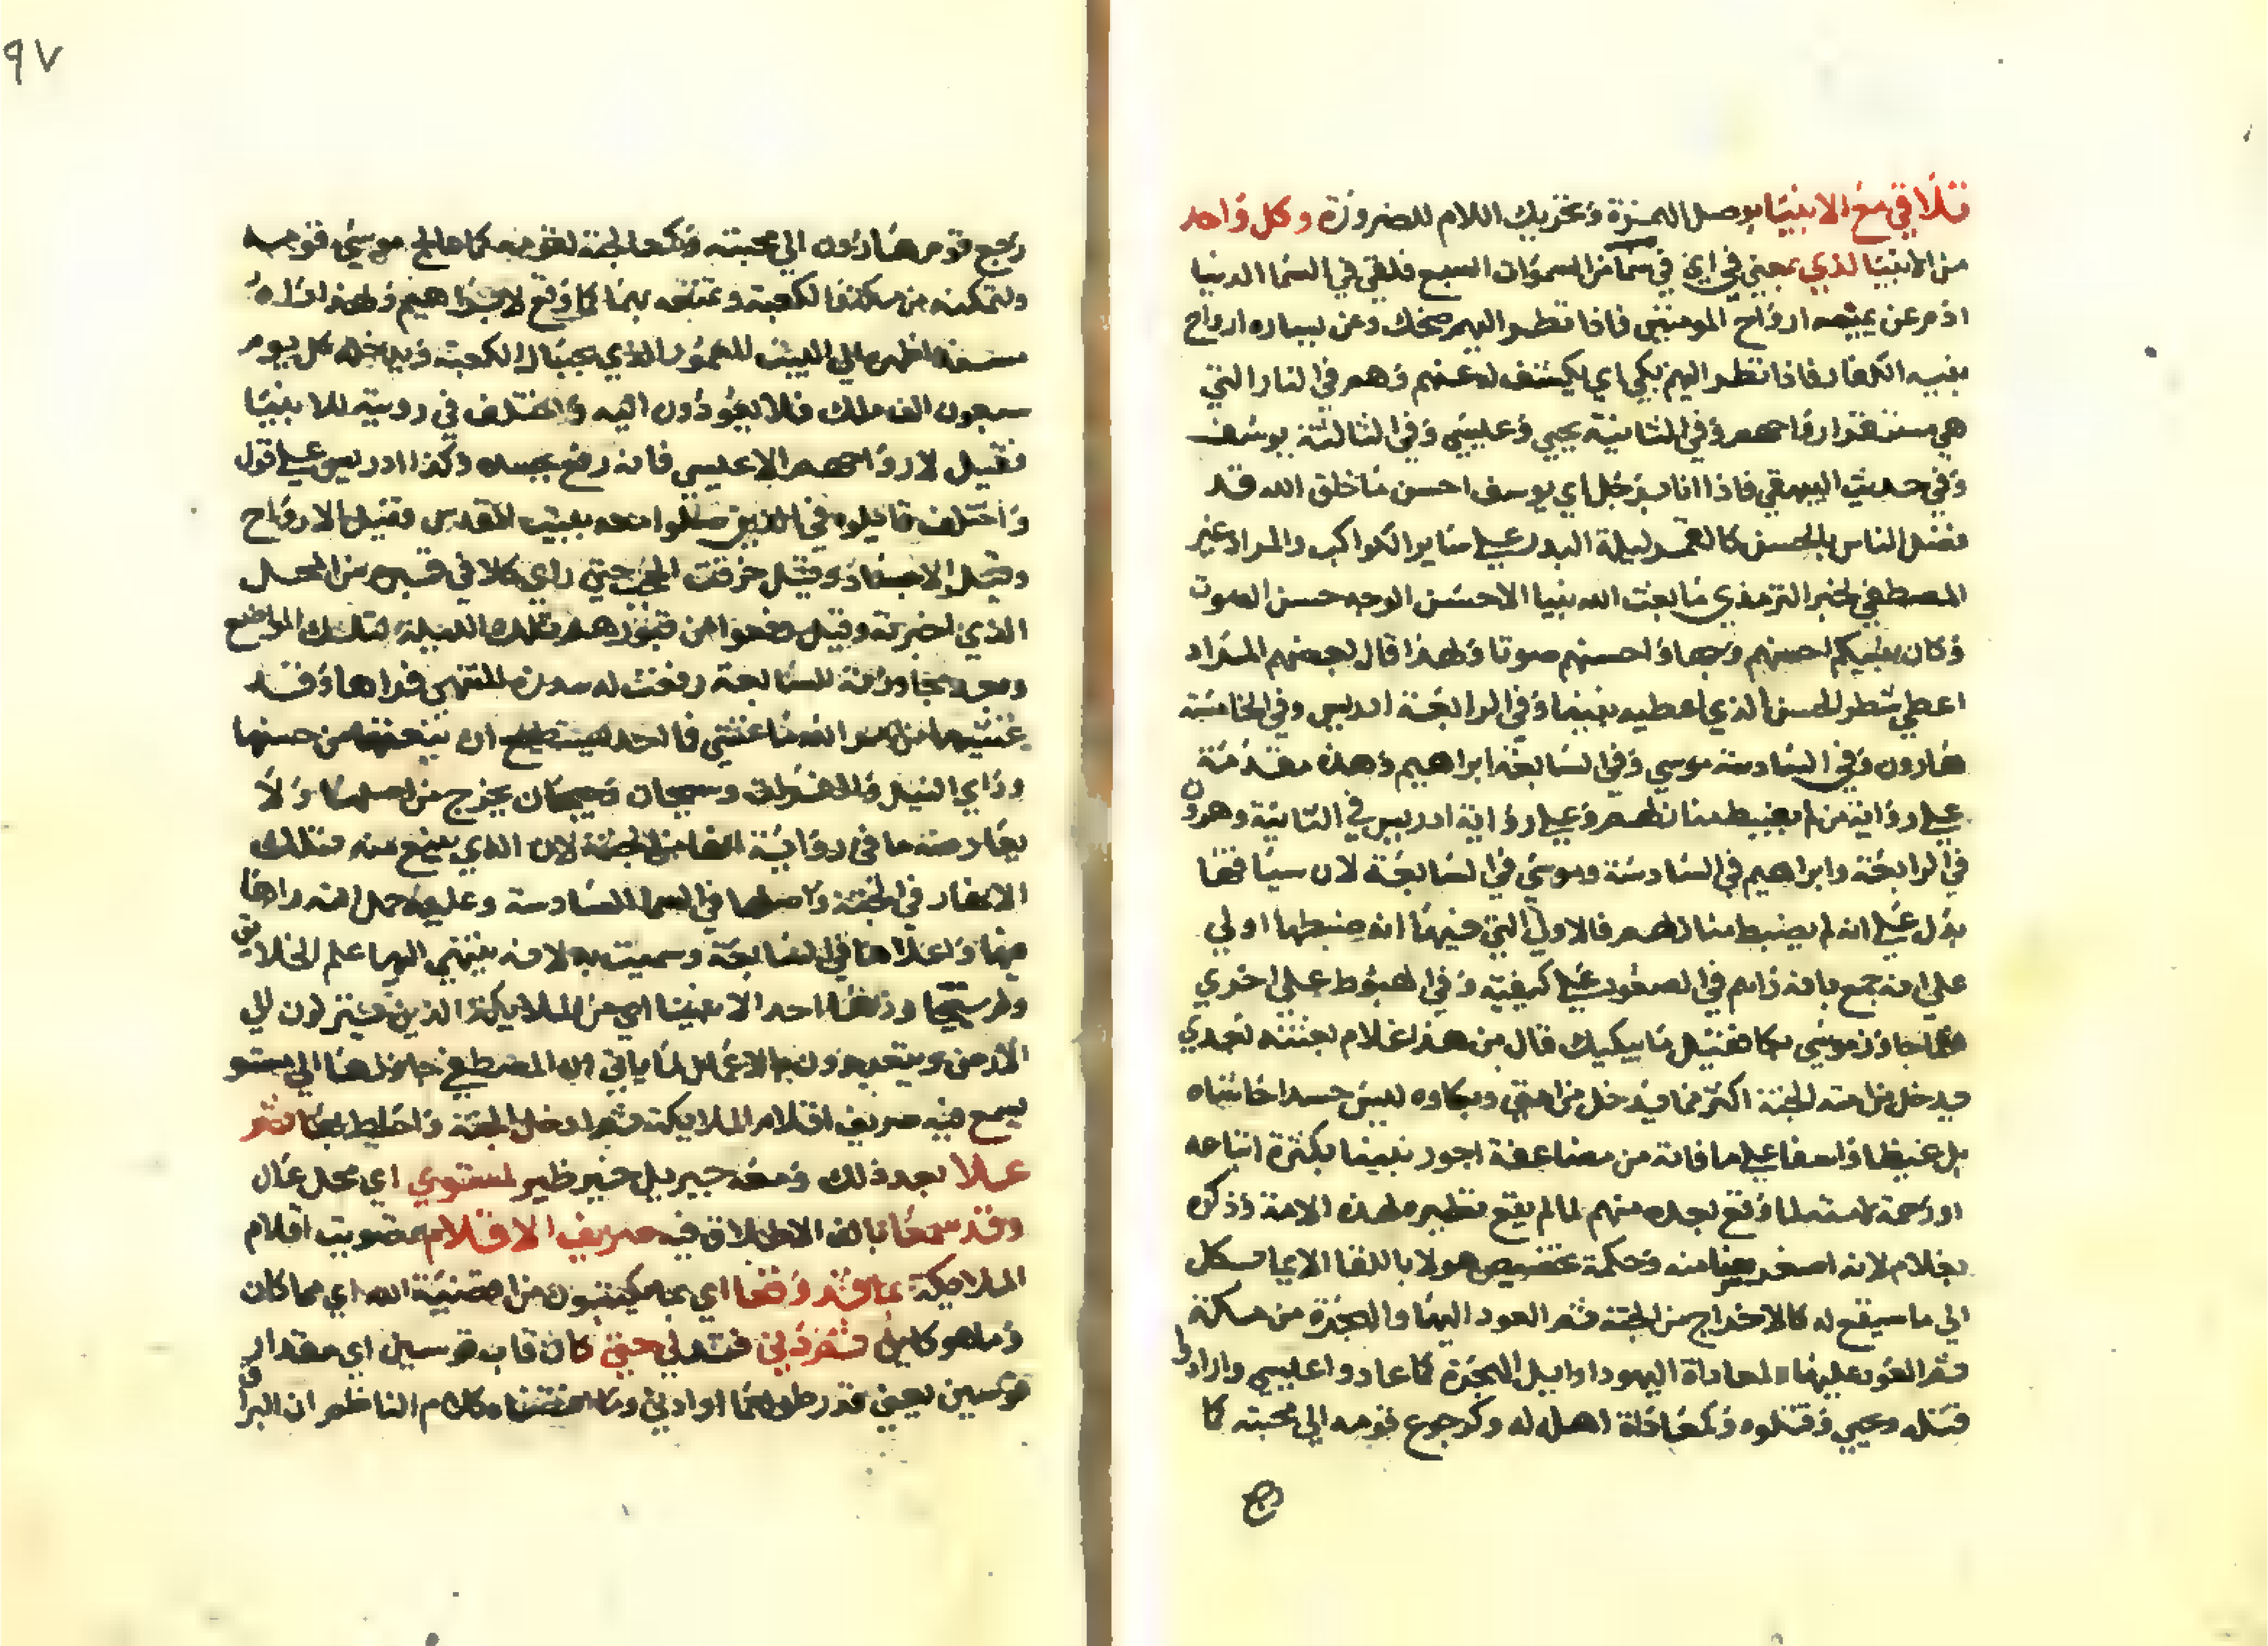 تلاقي مع الانبيا بوصل الهمزة وتحريك اللام للضرورة وكل واحد
من الانبيا لذي بمعني في اي في سما من السموات السبع فلقي في السما الدنيا
ادم عن يمينه ارواح المومنين فاذا نظر اليهم ضحك وعن يساره ارواح
بنيه الكفار فاذا نظر اليهم بكي اي يكشف له عنهم وهم في النار التي
هي مستقر ارواحهم وفي الثانية يحيي وعيسي وفي الثالثة يوسف
وفي حديث البيهقي فاذا انا برجل اي يوسف احسن ما خلق الله قد
فضل الناس بالحسن كالقمر ليلة البدر علي ساير الكواكب والمراد غير
المصطفي لخبر الترمذي ما بعث الله نبيا الا حسن الوجه حسن الصوت
وكان نبيكم احسنهم وجها واحسنهم صوتا ولهذا قال بعضهم المراد
اعطي شطر الحسن الذي اعطيه نبينا وفي الرابعة ادريس وفي الخامسة
هارون وفي السادسة موسي وفي السابعة ابراهيم وهذه مقدمة
علي رواية من لم يضبط منازلهم وعلي رواية ادريس في الثانية وهرون
في الرابعة وابراهيم في السادسة وموسي في السابعة لان سياقها
يدل علي انه لم يضبط منازلهم فالاولي التي فيها انه ضبطها اولي
علي انه جمع بانه راهم في الصعود علي كيفية وفي الهبوط علي اخري
فلما جاوز موسي بكا فقيل ما يبكيك قال من هذا غلام بعثته بعدي
يدخل من امته الجنة اكثر مما يدخل من امتي وبكاوه ليس حسدا حاشاه
بل غبطا واسفا علي ما فاته من مضاعفة اجور نبينا بكثرة اتباعه
او رحمة لامته لما وقع بعده منهم لما لم يقع نظيره لهذه الامة وذكره
بغلام لانه اصغر سنا منه وحكمة تخصيص هولا باللقا الايما لكل
الي ما سيقع له كالاخراج من الجنة ثم العود اليها والهجرة من مكة
ثم العود عليها لمعاداة اليهود اوايل الهجرة كما عادوا عيسي وارادوا
قتله ويحيي وقتلوه وكمعاداة اهل له وكرجوع قومه الي محبته كما
٩٧
رجع قوم هارون الي محبته وكمعالجة لقومه كما عالج موسي قومه
ولتمكنه من سكني الكعبة وتمتعه بها كما وقع لابراهيم ولهذا راه
مسندا ظهره الي البيت المعمور الذي بحيال الكعبة ويدخله كل يوم
سبعون الف ملك فلا يعودون اليه واختلف في رويته للانبيا
فقيل لارواحهم الا عيسي فانه رفع بجسده وكذا ادريس علي قول
واختلف قايلوه في الذين صلوا معه ببيت المقدس فقيل الارواح
وقيل الاجساد وقيل خرقت الحجب حتي راي كلا في قبره من المحل
الذي اخبر به وقيل رفعوا من قبورهم تلك الليلة لتلك المواضع
وبعد مجاوزته للسابعة رفعت له سدرة المنتهي فراها وقد
غشيها من امر الله ما غشي فما احد يستطيع ان ينعتها من حسنها
وراي النيل والفرات وسيحان وجيحان يخرج من اصلها ولا
يعارضه ما في رواية انها من الجنة لان الذي ينبع منه تلك
الانهار في الجنة واصلها في السما السادسة وعليه حمل انه راها
فيها واعلاها في السابعة وسميت به لانه ينتهي اليها علم الخلايق
ولم يتجاوزها احد الا نبينا اي من الملايكة الذين ينزلون الي
الارض ويصعدون بالاعمال لما ياتي ان المصطفي جاوزها الي مستو
يسمع فيه صريف اقلام الملايكة ثم ادخل الجنة واحيط بها ثم
علا بعد ذلك ومعه جبريل خير ظهير لمستوي اي محل عال
وقد سمعا بالف الاطلاق فيه صريف الاقلام تصويت اقلام
الملايكة بما قد وقعا اي بما يكتبون من اقضية الله اي مما كان
وما هو كاين ثم دني فتدلي حتي كان قاب قوسين اي مقدار
قوسين يعني قدر طولهما او ادني وما اقتضاه كلام الناظم ان البراق